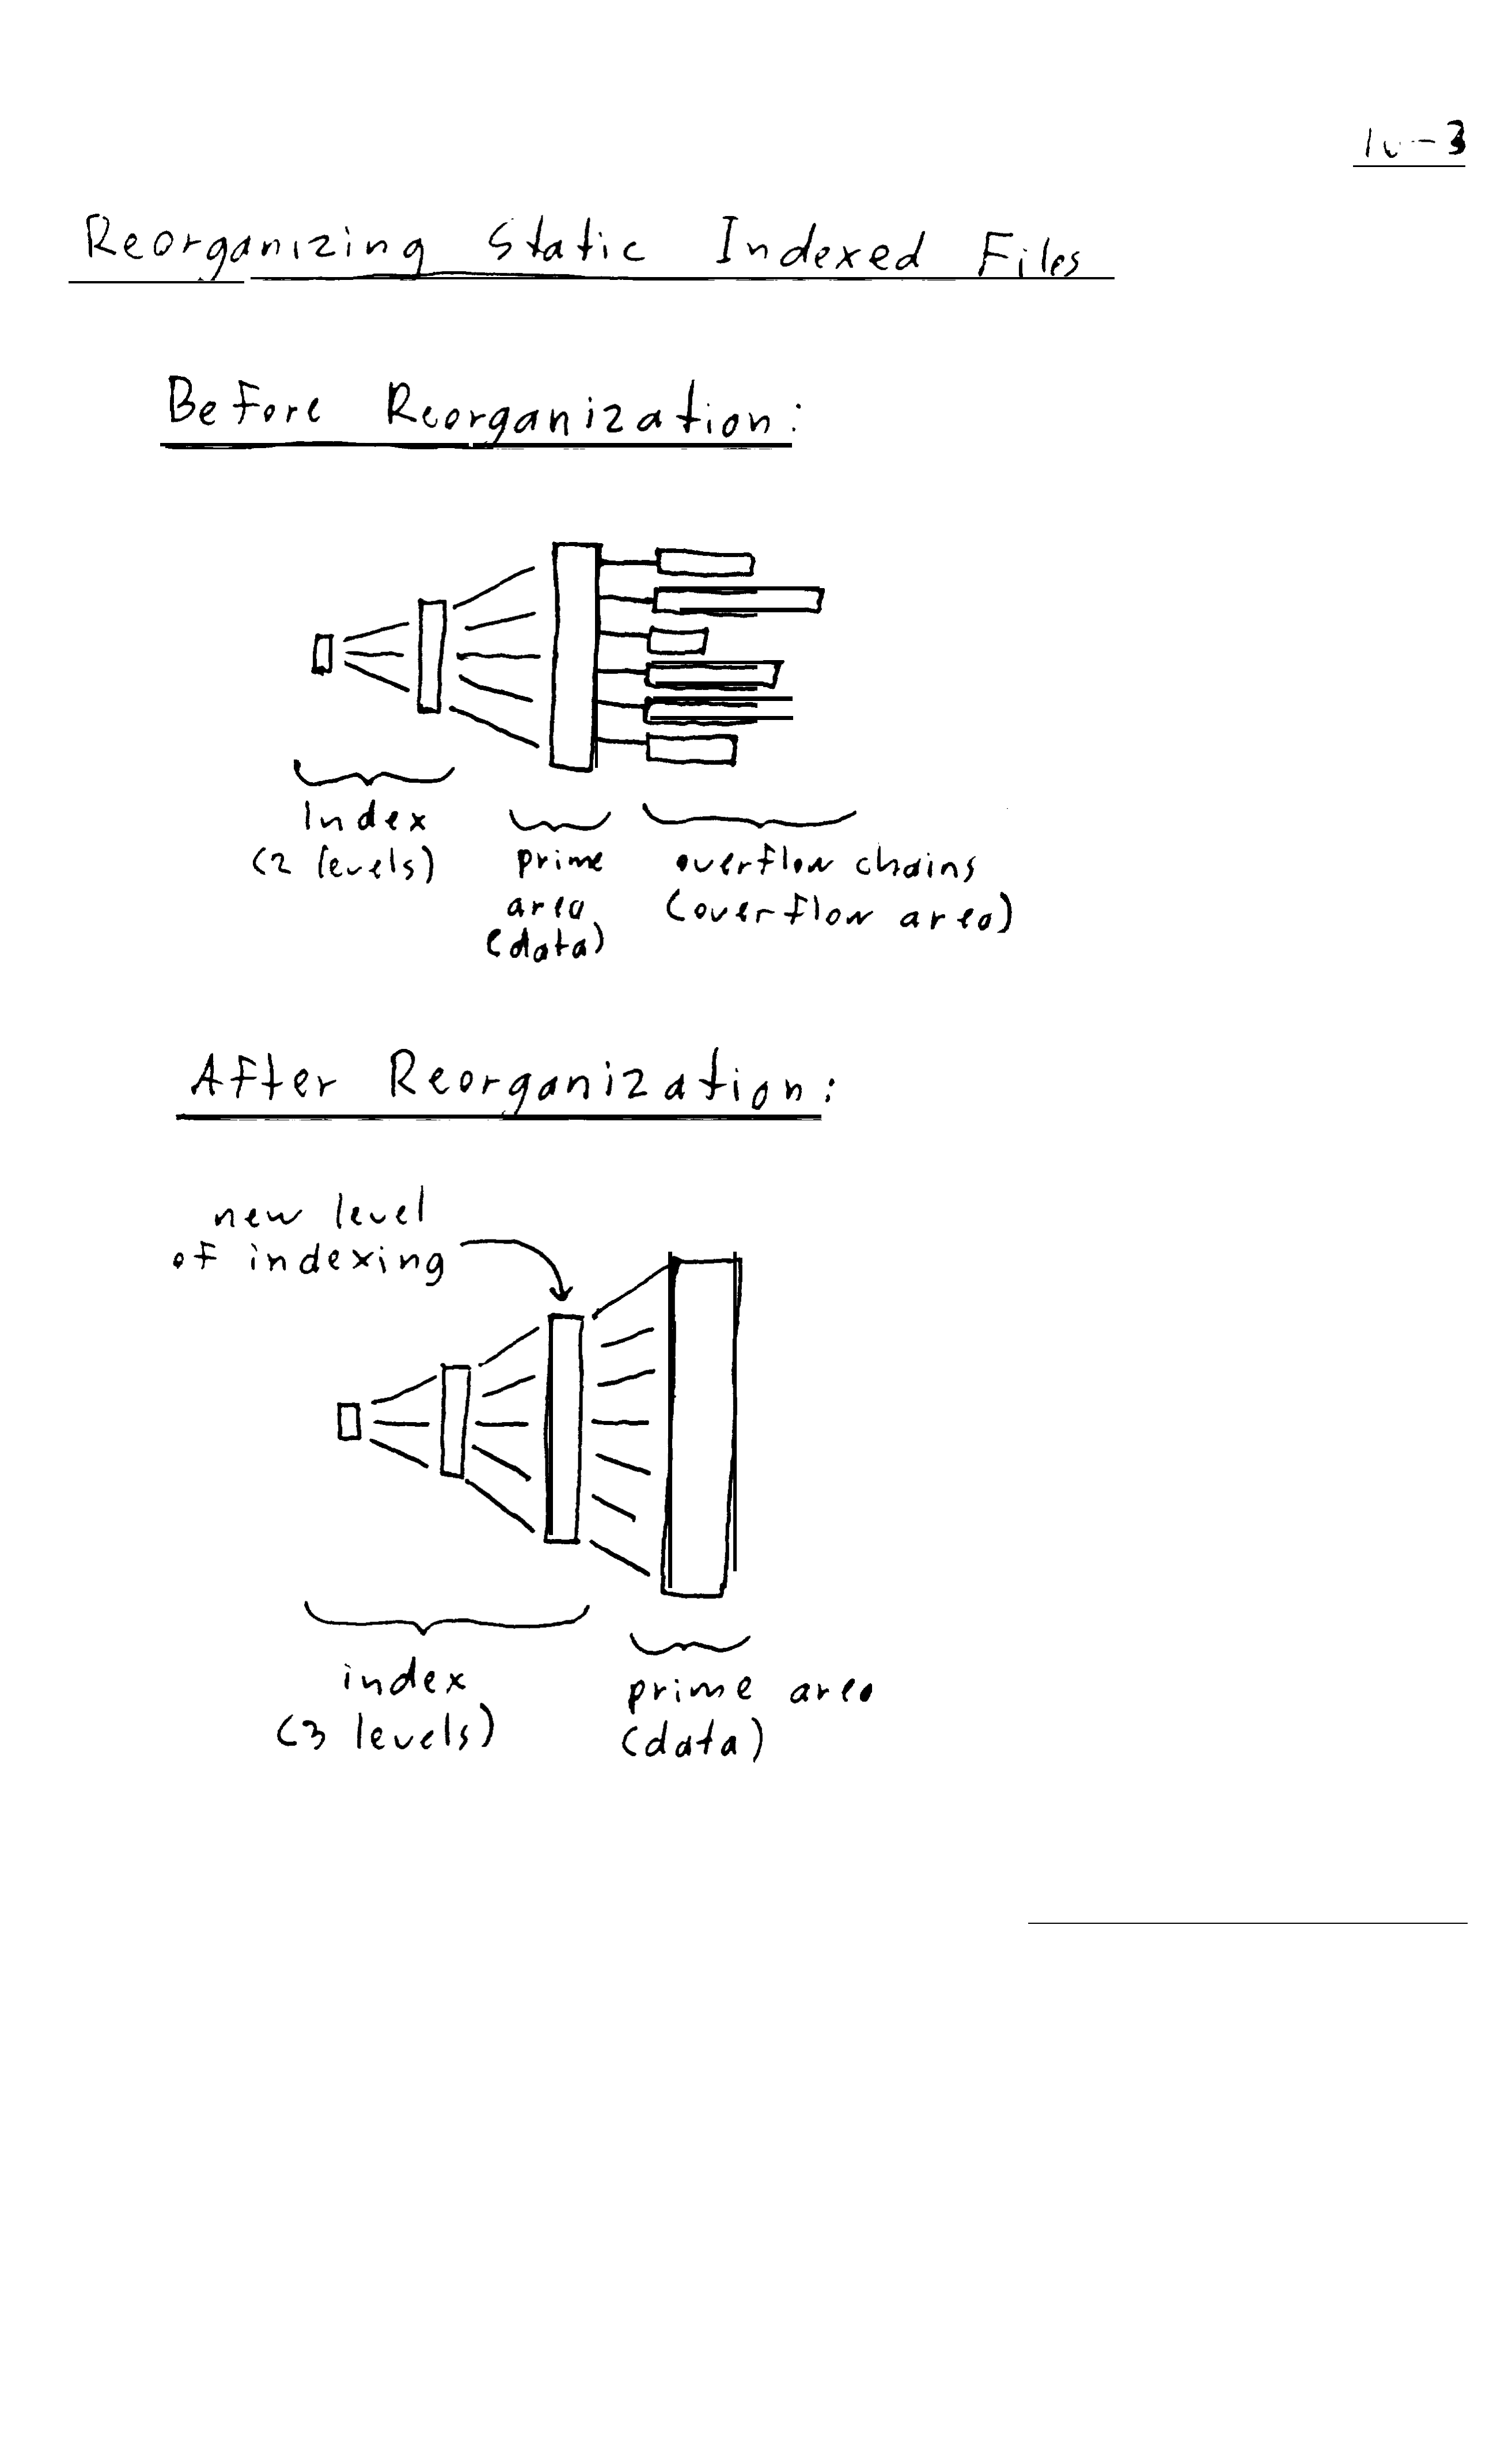 Reorganizing Static Indexed Files
Before Reorganization:
Index
(2 levels)
prime
area
(data)
overflow chains
(overflow area)
After Reorganization:
new level
of indexing
index
(3 levels)
prime area
(data)